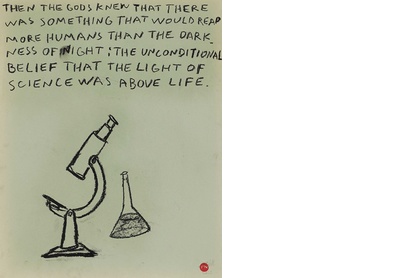 THEN THE GODS KNEW THAT THERE
WAS SOMETHING THAT WOULD READ
MORE HUMANS THAN THE DARK-
NESS OF NIGHT: THE UNCONDITIONAL
BELIEF THAT THE LIGHT OF
SCIENCE WAS ABOVE LIFE.